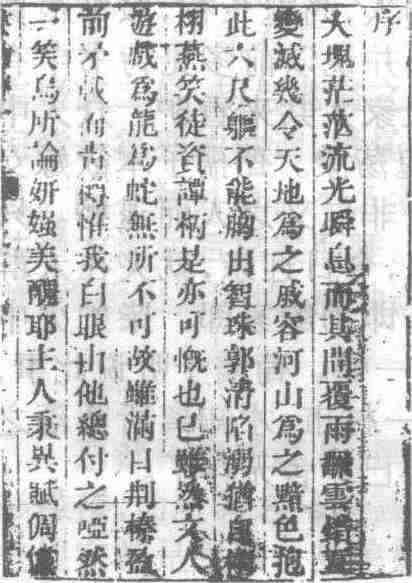 序
大塊茫茫流光瞬息而其間覆雨飜雲
變滅幾令天地爲之戚容河山爲之黯色抱
此六尺軀不能胸出智珠郭清陷溺猶
栩燕笑徒資譚柄是亦可慨也已雖然文人
遊戲爲龍爲蛇無所不可故雖滿目荆榛盈
前矛戟而岸幘惟我白眼由他總付之啞然
一笑烏所論妍媸美醜耶主人秉異賦倜